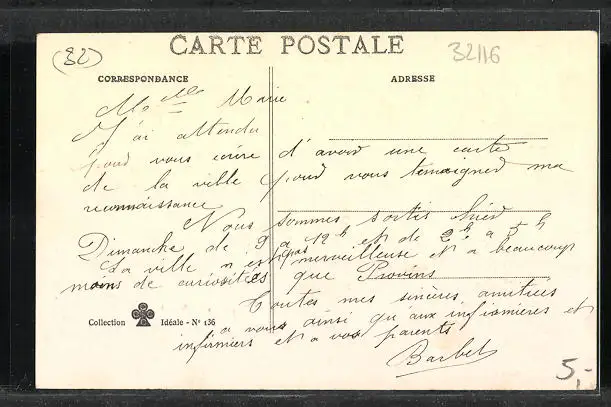 (82)
CARTE POSTALE
32116
CORRESPONDANCE
ADRESSE
Mlle Marie
J'ai attendu
pour vous écrire d'avoir une carte
de la ville pour vous temoigned ma
reconnaissance
Nous sommes sortis hier
Dimanche de 9 a 12h et de 2h a 5h
La ville n'est pas merveilleuse et a beaucoup
moins de curiosités que Provins
Toutes mes sincères amitiées
a vous ainsi qu'aux infirmieres et
infirmiers et a vos parents
Barbet
Collection Idéale - N° 136
5,-